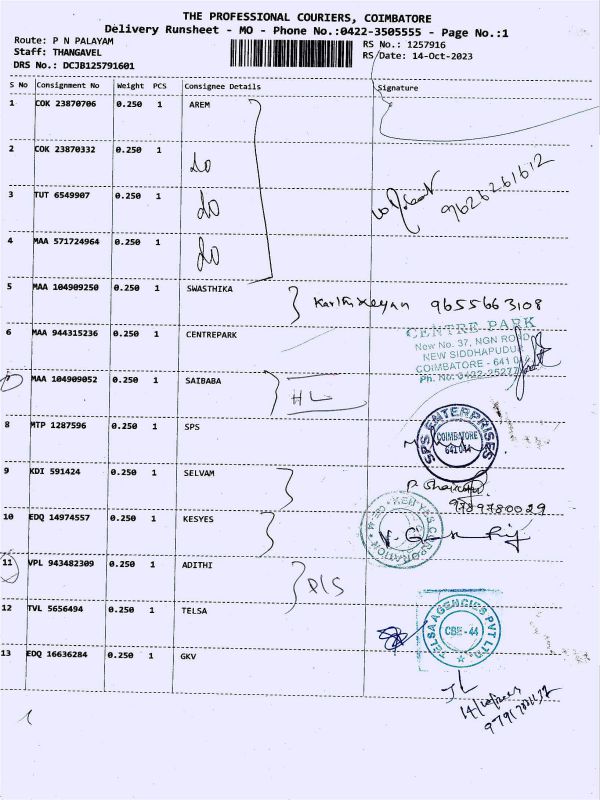 THE PROFESSIONAL COURIERS, COIMBATORE
Delivery Runsheet - MO - Phone No.:0422-3505555 - Page No.:1
Route: P N PALAYAM
RS No.: 1257916
Staff: THANGAVEL
RS Date: 14-Oct-2023
DRS No.: DCJB125791601
S No Consignment No Weight PCS Consignee Details Signature
1 COK 23870706 0.250 1 AREM
2 COK 23870332 0.250 1 do
3 TUT 6549907 0.250 1 do
9626261612
4 MAA 571724964 0.250 1 do
5 MAA 104909250 0.250 1 SWASTHIKA Karthikeyan 9655663108
6 MAA 944315236 0.250 1 CENTREPARK
CENTRE PARK
New No. 37, NGN ROAD
NEW SIDDHAPUDUR
COIMBATORE - 641 0
Ph. No. 0422-25277
7 MAA 104909052 0.250 1 SAIBABA HL
8 MTP 1287596 0.250 1 SPS
SPS ENTERPRISES
COIMBATORE
641 044
9 KDI 591424 0.250 1 SELVAM
9789780029
10 EDQ 14974557 0.250 1 KESYES
KEN YES CORPORATION
CBE-44
11 VPL 943482309 0.250 1 ADITHI P/S
12 TVL 5656494 0.250 1 TELSA
TELSA AGENCIES PVT LTD.
CBE-44
13 EDQ 16636284 0.250 1 GKV
JL